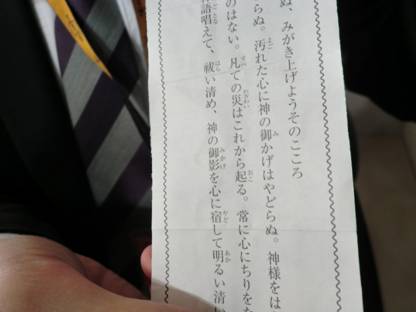 ぬ、みがき上げようそのこころ
らぬ。汚れた心に神の御かげはやどらぬ。神様をは
のはない。凡ての災はこれから起る。常に心にちりをな
語唱えて、祓い清め、神の御影を心に宿して明るい清い